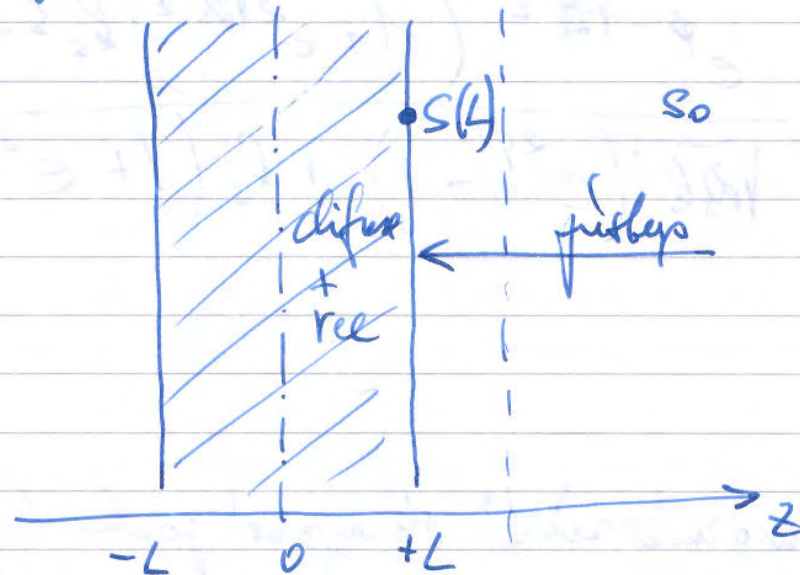 S(L)
S₀
difuze
+
rce
přestup
z
-L 0 +L